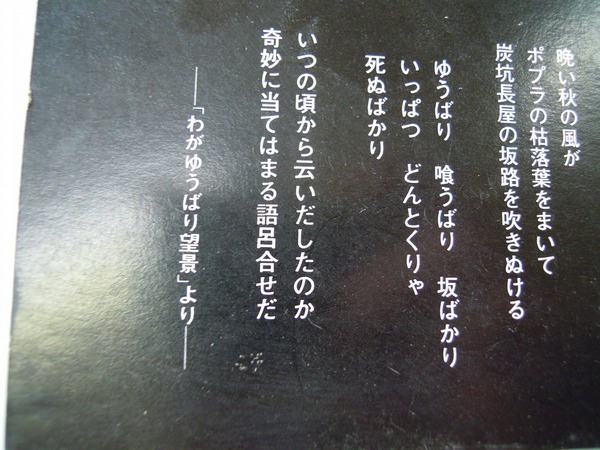 晩い秋の風が
ポプラの枯落葉をまいて
炭坑長屋の坂路を吹きぬける
ゆうばり　喰うばり　坂ばかり
いっぱつ　どんとくりゃ
死ぬばかり
いつの頃から云いだしたのか
奇妙に当てはまる語呂合せだ
――「わがゆうばり望景」より――